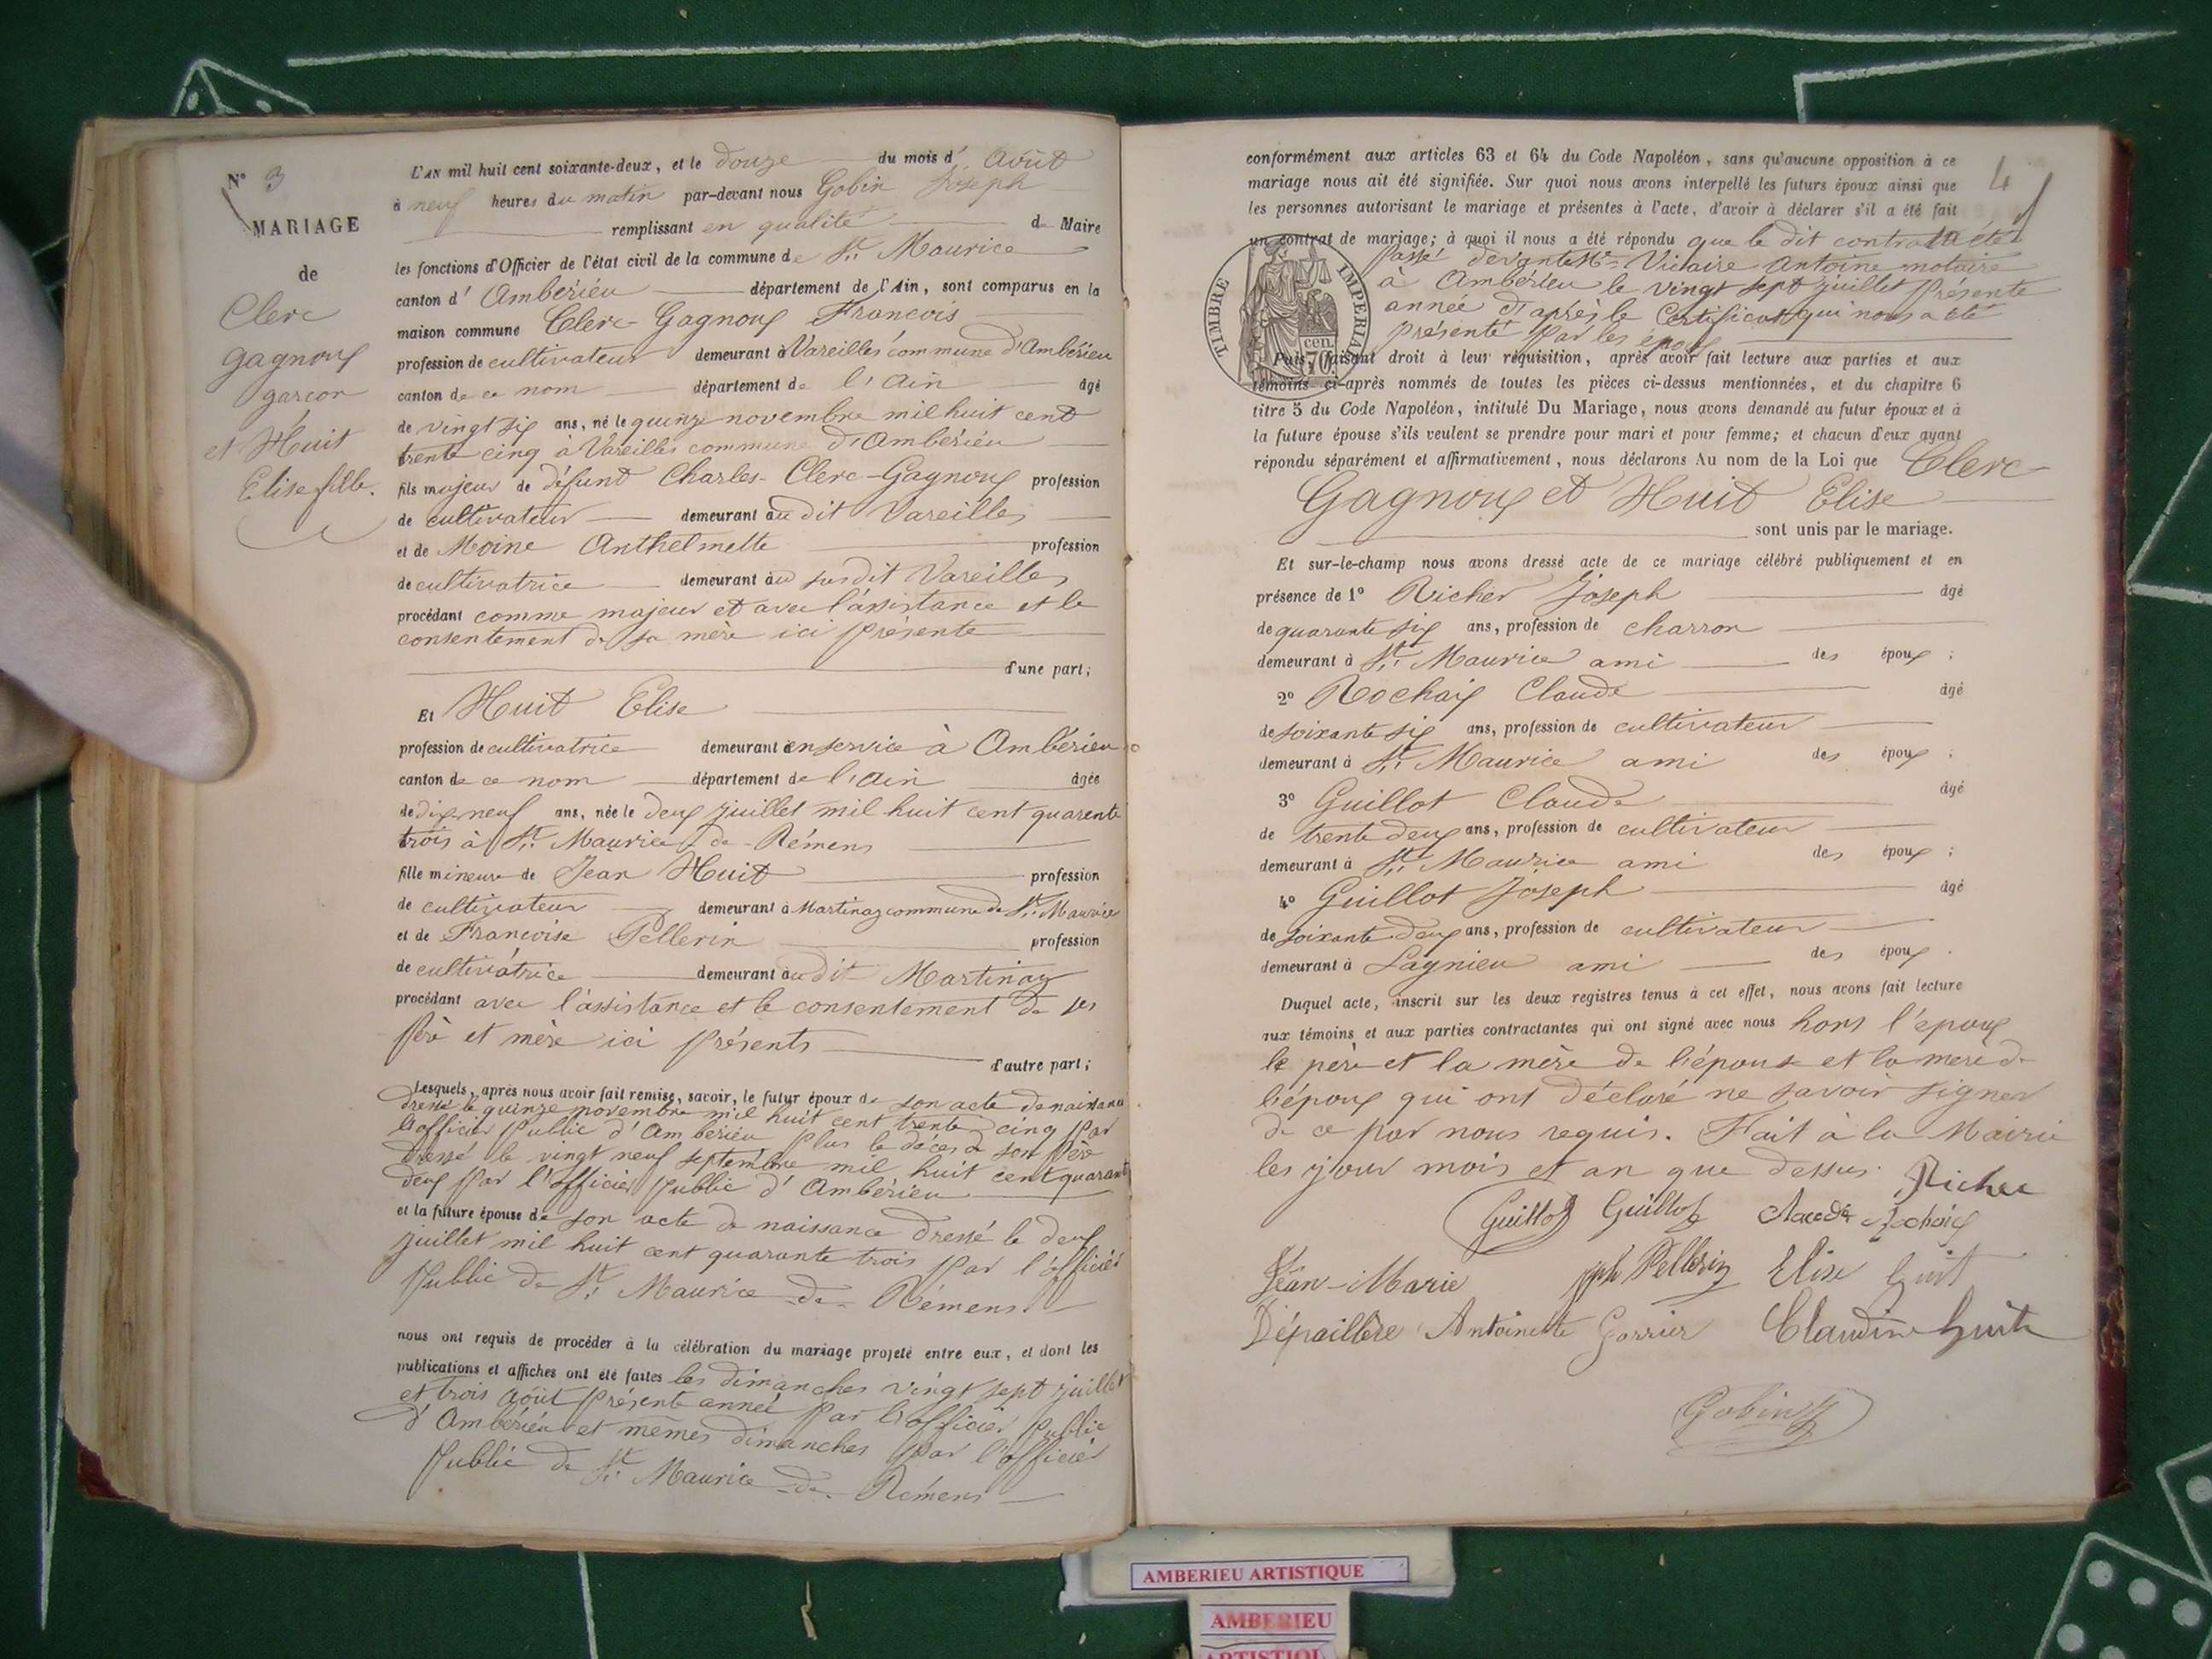 N° 3
MARIAGE
de
Clerc
Gagnoux
garçon
et Huit
Elise fille.
L'AN mil huit cent soixante-deux, et le douze du mois d' Août
à neuf heures du matin par-devant nous Gobin Joseph
remplissant en qualité de Maire
les fonctions d'Officier de l'état civil de la commune de St. Maurice
canton d' Ambérieu département de l'Ain, sont comparus en la
maison commune Clerc-Gagnoux François
profession de cultivateur demeurant à Vareilles commune d'Ambérieu
canton de ce nom département de l'Ain âgé
de vingt six ans, né le quinze novembre mil huit cent
trente cinq à Vareilles commune d'Ambérieu
fils majeur de défunt Charles-Clerc-Gagnoux profession
de cultivateur demeurant au dit Vareilles
et de Moine Anthelmette profession
de cultivatrice demeurant au susdit Vareilles
procédant comme majeur et avec l'assistance et le
consentement de sa mère ici présente
d'une part;
Et Huit Elise
profession de cultivatrice demeurant en service à Ambérieu
canton de ce nom département de l'Ain âgée
de dix neuf ans, née le deux juillet mil huit cent quarente
trois à St. Maurice-de-Rémens
fille mineure de Jean Huit profession
de cultivateur demeurant à Martinaz commune de St. Maurice
et de Françoise Pellerin profession
de cultivatrice demeurant au dit Martinaz
procédant avec l'assistance et le consentement de ses
père et mère ici présents
d'autre part;
Lesquels, après nous avoir fait remise, savoir, le futur époux de son acte de naissance
dressé le quinze novembre mil huit cent trente cinq par
l'officier public d'Ambérieu plus le décès de son père
dressé le vingt neuf septembre mil huit cent quarante
deux par l'officier public d'Ambérieu
et la future épouse de son acte de naissance dressé le deux
juillet mil huit cent quarante trois par l'officier
public de St. Maurice-de-Rémens
nous ont requis de procéder à la célébration du mariage projeté entre eux, et dont les
publications et affiches ont été faites les dimanches vingt sept juillet
et trois Août présente année par l'officier public
d'Ambérieu et mêmes dimanches par l'officier
public de St. Maurice-de-Rémens
4
conformément aux articles 63 et 64 du Code Napoléon, sans qu'aucune opposition à ce
mariage nous ait été signifiée. Sur quoi nous avons interpellé les futurs époux ainsi que
les personnes autorisant le mariage et présentes à l'acte, d'avoir à déclarer s'il a été fait
un contrat de mariage; à quoi il nous a été répondu que le dit contrat a été
passé devant Me Victaire Antoine notaire
à Ambérieu le vingt sept juillet présente
année d'après le Certificat qui nous a été
présenté par les époux
TIMBRE IMPÉRIAL
70 cen.
Puis, faisant droit à leur réquisition, après avoir fait lecture aux parties et aux
témoins ci-après nommés de toutes les pièces ci-dessus mentionnées, et du chapitre 6
titre 5 du Code Napoléon, intitulé Du Mariage, nous avons demandé au futur époux et à
la future épouse s'ils veulent se prendre pour mari et pour femme; et chacun d'eux ayant
répondu séparément et affirmativement, nous déclarons Au nom de la Loi que Clerc
Gagnoux et Huit Elise
sont unis par le mariage.
Et sur-le-champ nous avons dressé acte de ce mariage célébré publiquement et en
présence de 1° Richer Joseph âgé
de quarante six ans, profession de charron
demeurant à St. Maurice ami des époux ;
2° Rochaix Claude âgé
de soixante six ans, profession de cultivateur
demeurant à St. Maurice ami des époux ;
3° Guillot Claude âgé
de trente deux ans, profession de cultivateur
demeurant à St. Maurice ami des époux ;
4° Guillot Joseph âgé
de soixante deux ans, profession de cultivateur
demeurant à Lagnieu ami des époux .
Duquel acte, inscrit sur les deux registres tenus à cet effet, nous avons fait lecture
aux témoins et aux parties contractantes qui ont signé avec nous hors l'époux
le père et la mère de l'épouse et la mère de
l'époux qui ont déclaré ne savoir signer
de ce par nous requis. Fait à la Mairie
les jour mois et an que dessus.
Richer
Guillot Guillot Rochaix
Jean-Marie jph Pellerin Elise huit
Dépaillère Antoinette Gorrier Claudine huit
Gobin
AMBERIEU ARTISTIQUE
AMBERIEU
ARTISTIQU